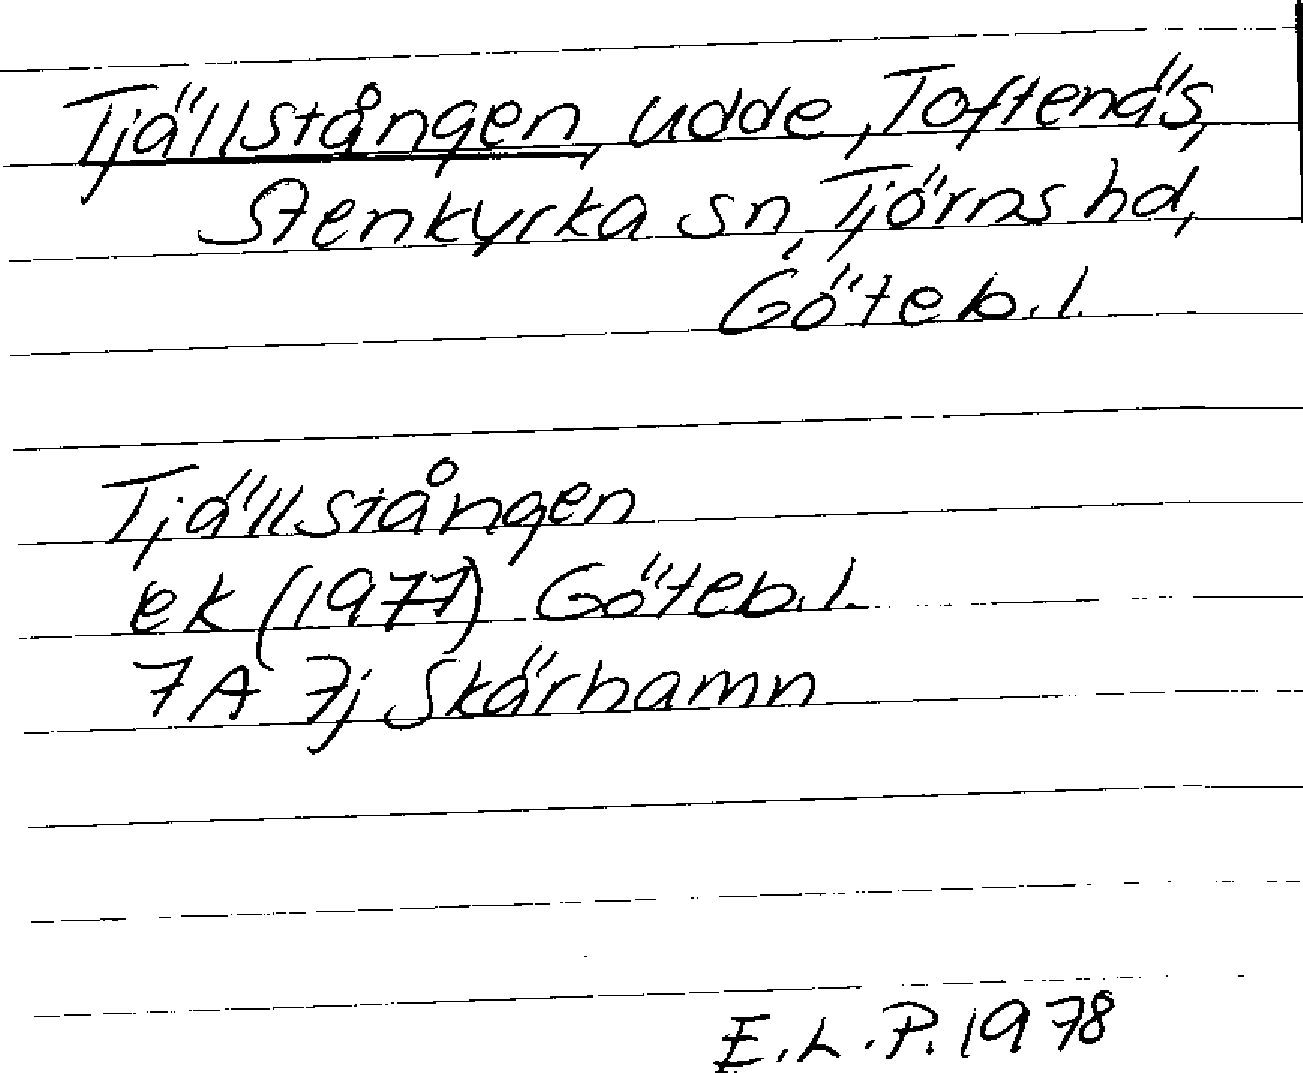 Tjällstången, udde, Toftenäs,
Stenkyrka sn, Tjörns hd,
Göteb. l.
Tjällstången
ek (1977) Göteb. l.
7A 7j Skärhamn
E. L. P. 1978